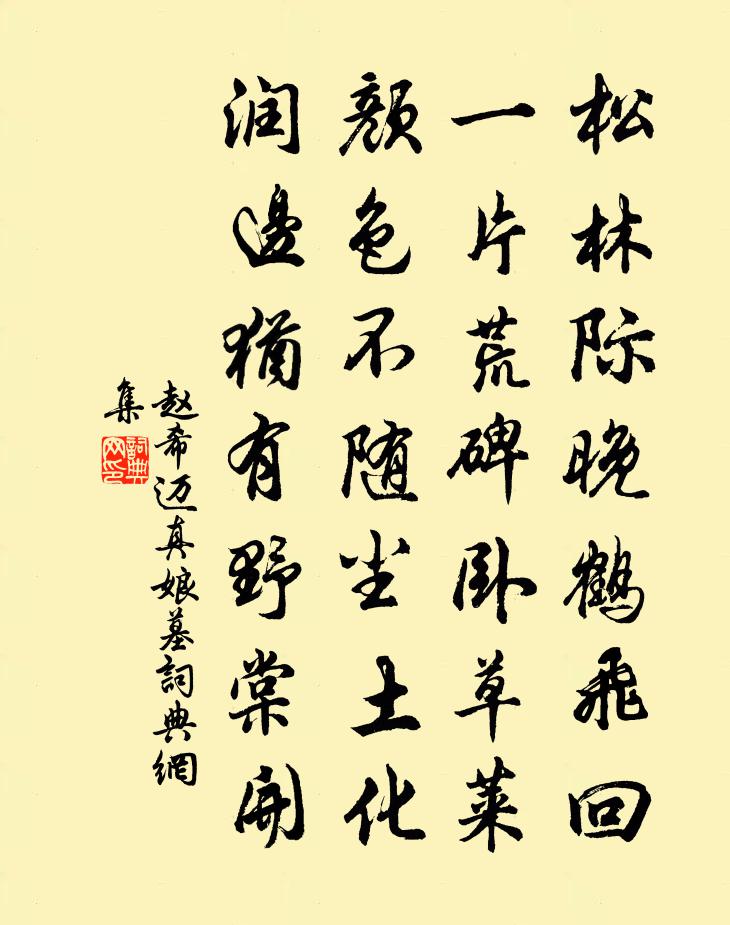 松林际晚鹤飞回
一片荒碑卧草莱
颜色不随尘土化
润邊猶有野棠開
赵希迈真娘墓詞典網
集
詞典
网印